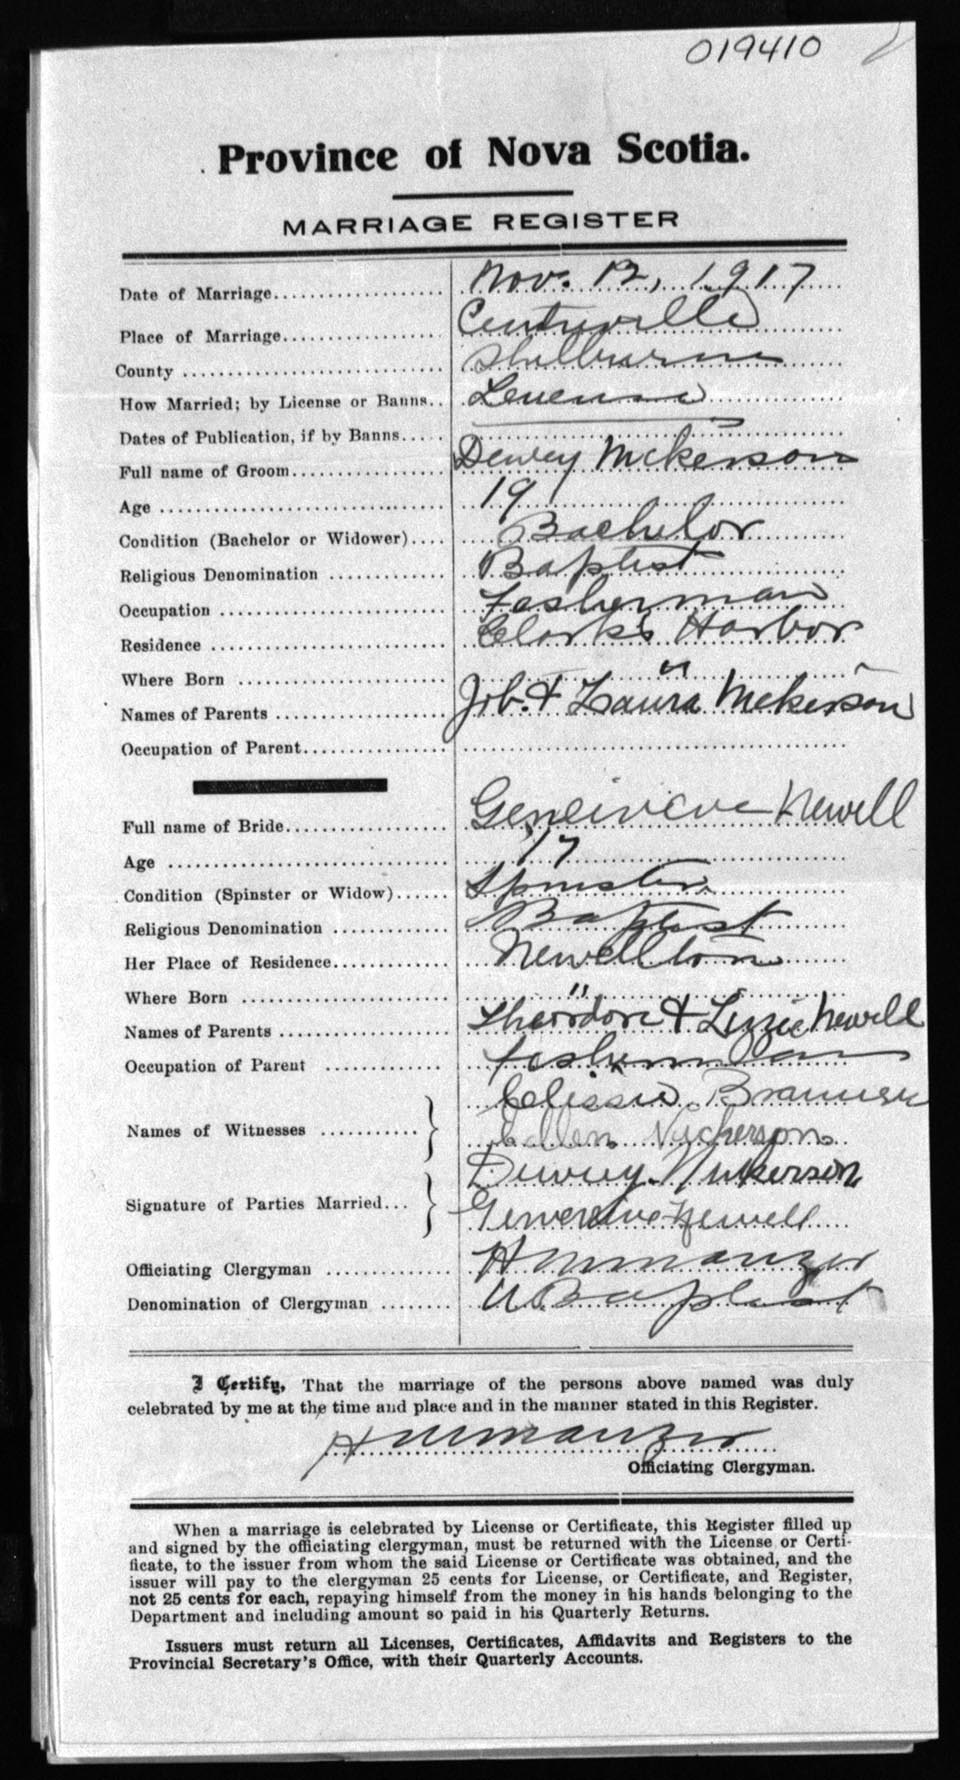 019410
Province of Nova Scotia.
MARRIAGE REGISTER
Date of Marriage Nov. 12, 1917
Place of Marriage Centreville
County Shelburne
How Married; by License or Banns License
Dates of Publication, if by Banns
Full name of Groom Dewey Nickerson
Age 19
Condition (Bachelor or Widower) Bachelor
Religious Denomination Baptist
Occupation Fisherman
Residence Clark's Harbor
Where Born "
Names of Parents Job. & Laura Nickerson
Occupation of Parent
Full name of Bride Geneivieve Newell
Age 17
Condition (Spinster or Widow) Spinster
Religious Denomination Baptist
Her Place of Residence Newellton
Where Born "
Names of Parents Theodore & Lizzie Newell
Occupation of Parent fisherman
Names of Witnesses
Nickerson
Signature of Parties Married Dewey Nickerson
Newell
Officiating Clergyman H M Manzer
Denomination of Clergyman U Baptist
I Certify, That the marriage of the persons above named was duly
celebrated by me at the time and place and in the manner stated in this Register.
H M Manzer
Officiating Clergyman.
When a marriage is celebrated by License or Certificate, this Register filled up
and signed by the officiating clergyman, must be returned with the License or Certi-
ficate, to the issuer from whom the said License or Certificate was obtained, and the
issuer will pay to the clergyman 25 cents for License, or Certificate, and Register,
not 25 cents for each, repaying himself from the money in his hands belonging to the
Department and including amount so paid in his Quarterly Returns.
Issuers must return all Licenses, Certificates, Affidavits and Registers to the
Provincial Secretary's Office, with their Quarterly Accounts.